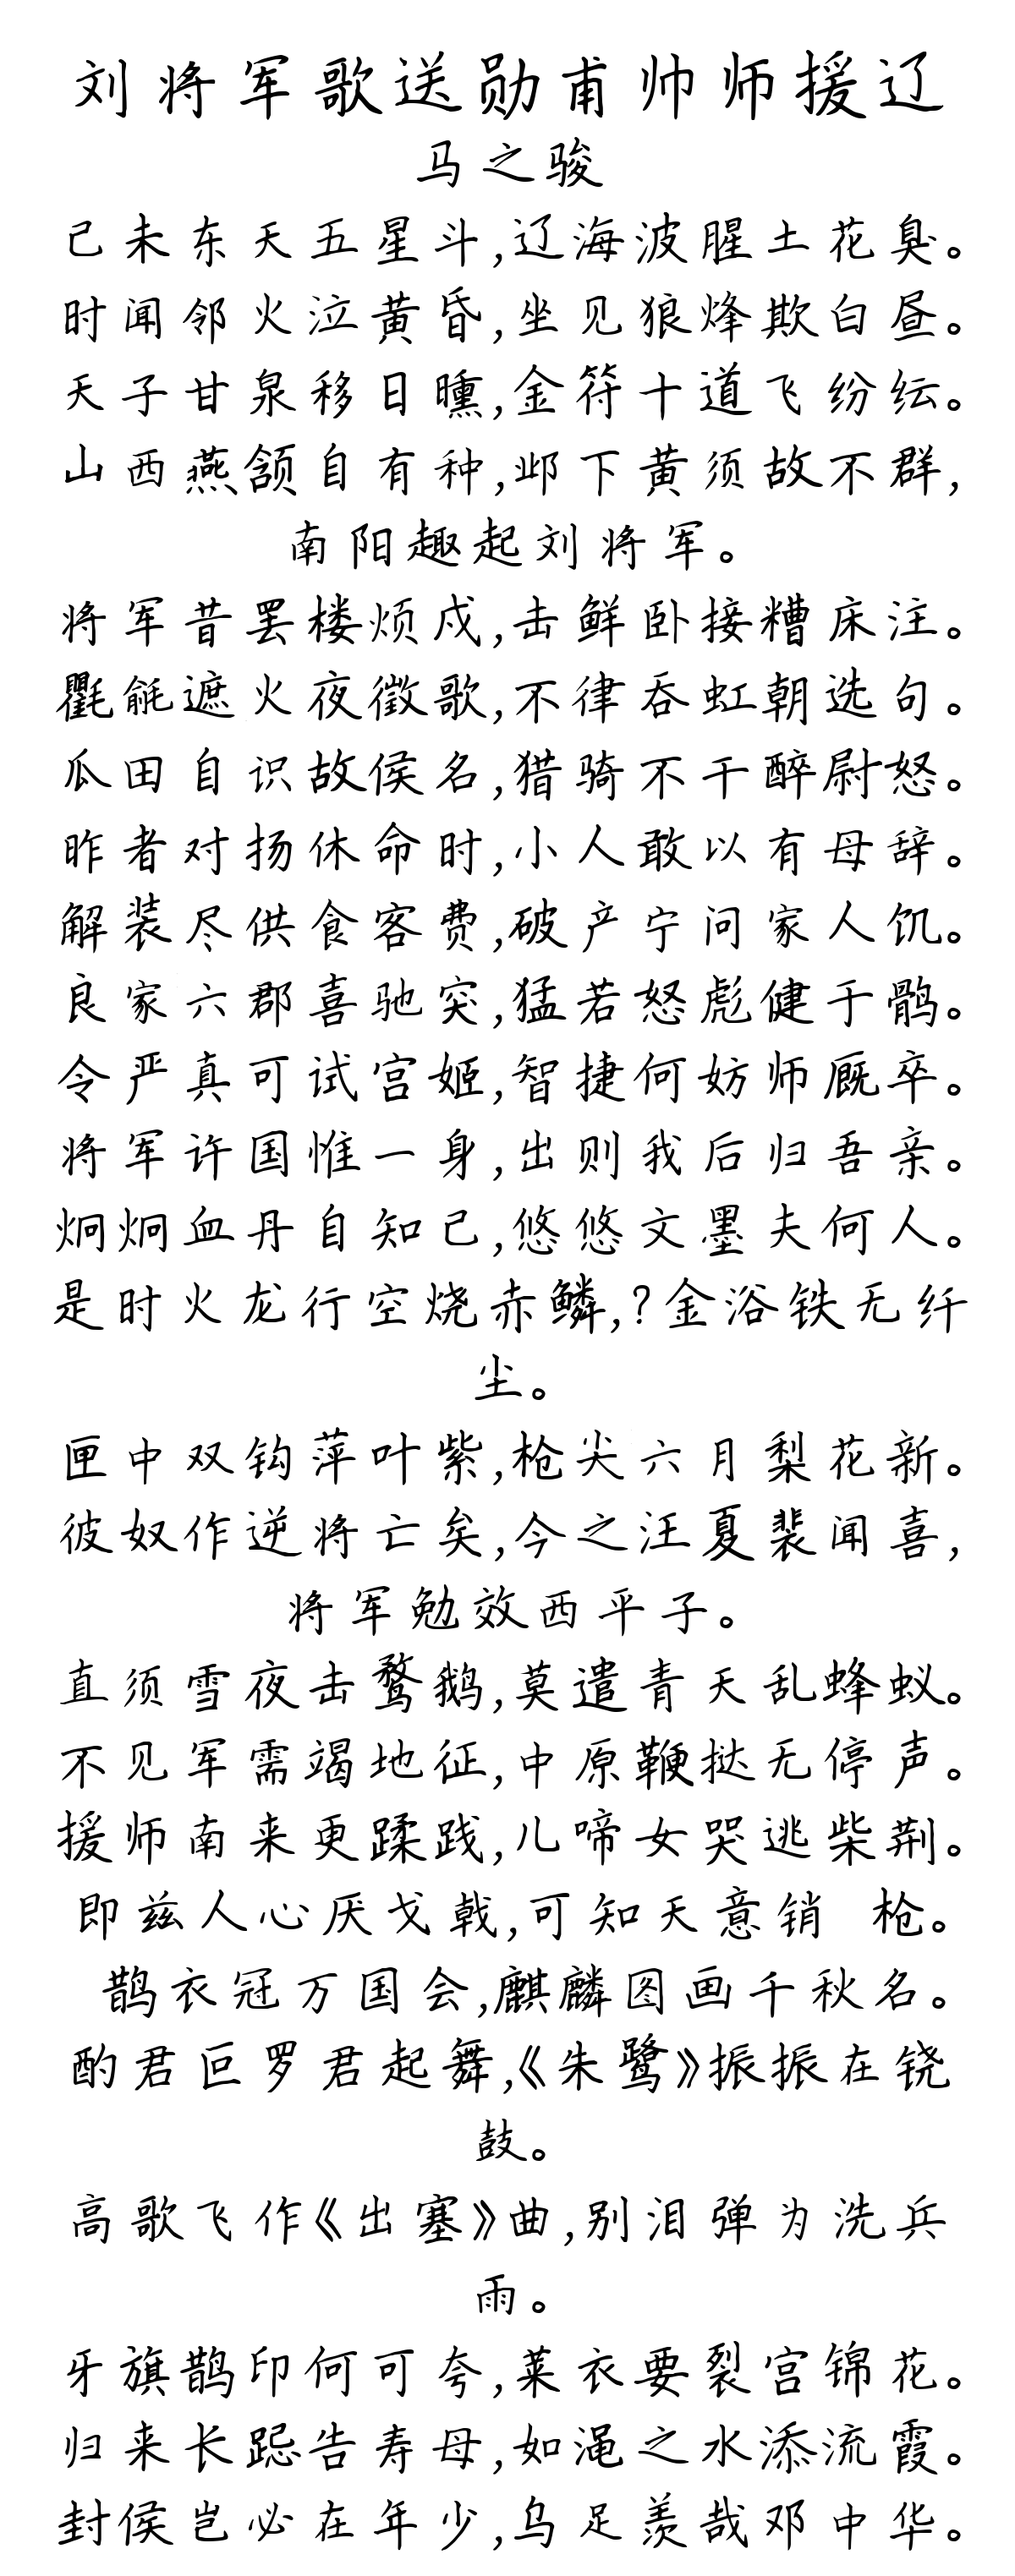 刘将军歌送勋甫帅师援辽
马之骏
己未东天五星斗,辽海波腥土花臭。
时闻邻火泣黄昏,坐见狼烽欺白昼。
天子甘泉移日曛,金符十道飞纷纭。
山西燕颔自有种,邺下黄须故不群,
南阳趣起刘将军。
将军昔罢楼烦戍,击鲜卧接糟床注。
氍毹遮火夜徵歌,不律吞虹朝选句。
瓜田自识故侯名,猎骑不干醉尉怒。
昨者对扬休命时,小人敢以有母辞。
解装尽供食客费,破产宁问家人饥。
良家六郡喜驰突,猛若怒彪健于鹘。
令严真可试宫姬,智捷何妨师厩卒。
将军许国惟一身,出则我后归吾亲。
炯炯血丹自知己,悠悠文墨夫何人。
是时火龙行空烧赤鳞,?金浴铁无纤
尘。
匣中双钩萍叶紫,枪尖六月梨花新。
彼奴作逆将亡矣,今之汪夏裴闻喜,
将军勉效西平子。
直须雪夜击鹜鹅,莫遣青天乱蜂蚁。
不见军需竭地征,中原鞭挞无停声。
援师南来更蹂践,儿啼女哭逃柴荆。
即兹人心厌戈戟,可知天意销 枪。
鹊衣冠万国会,麒麟图画千秋名。
酌君叵罗君起舞,《朱鹭》振振在铙
鼓。
高歌飞作《出塞》曲,别泪弹为洗兵
雨。
牙旗鹊印何可夸,莱衣要裂宫锦花。
归来长跽告寿母,如渑之水添流霞。
封侯岂必在年少,乌足羡哉邓中华。